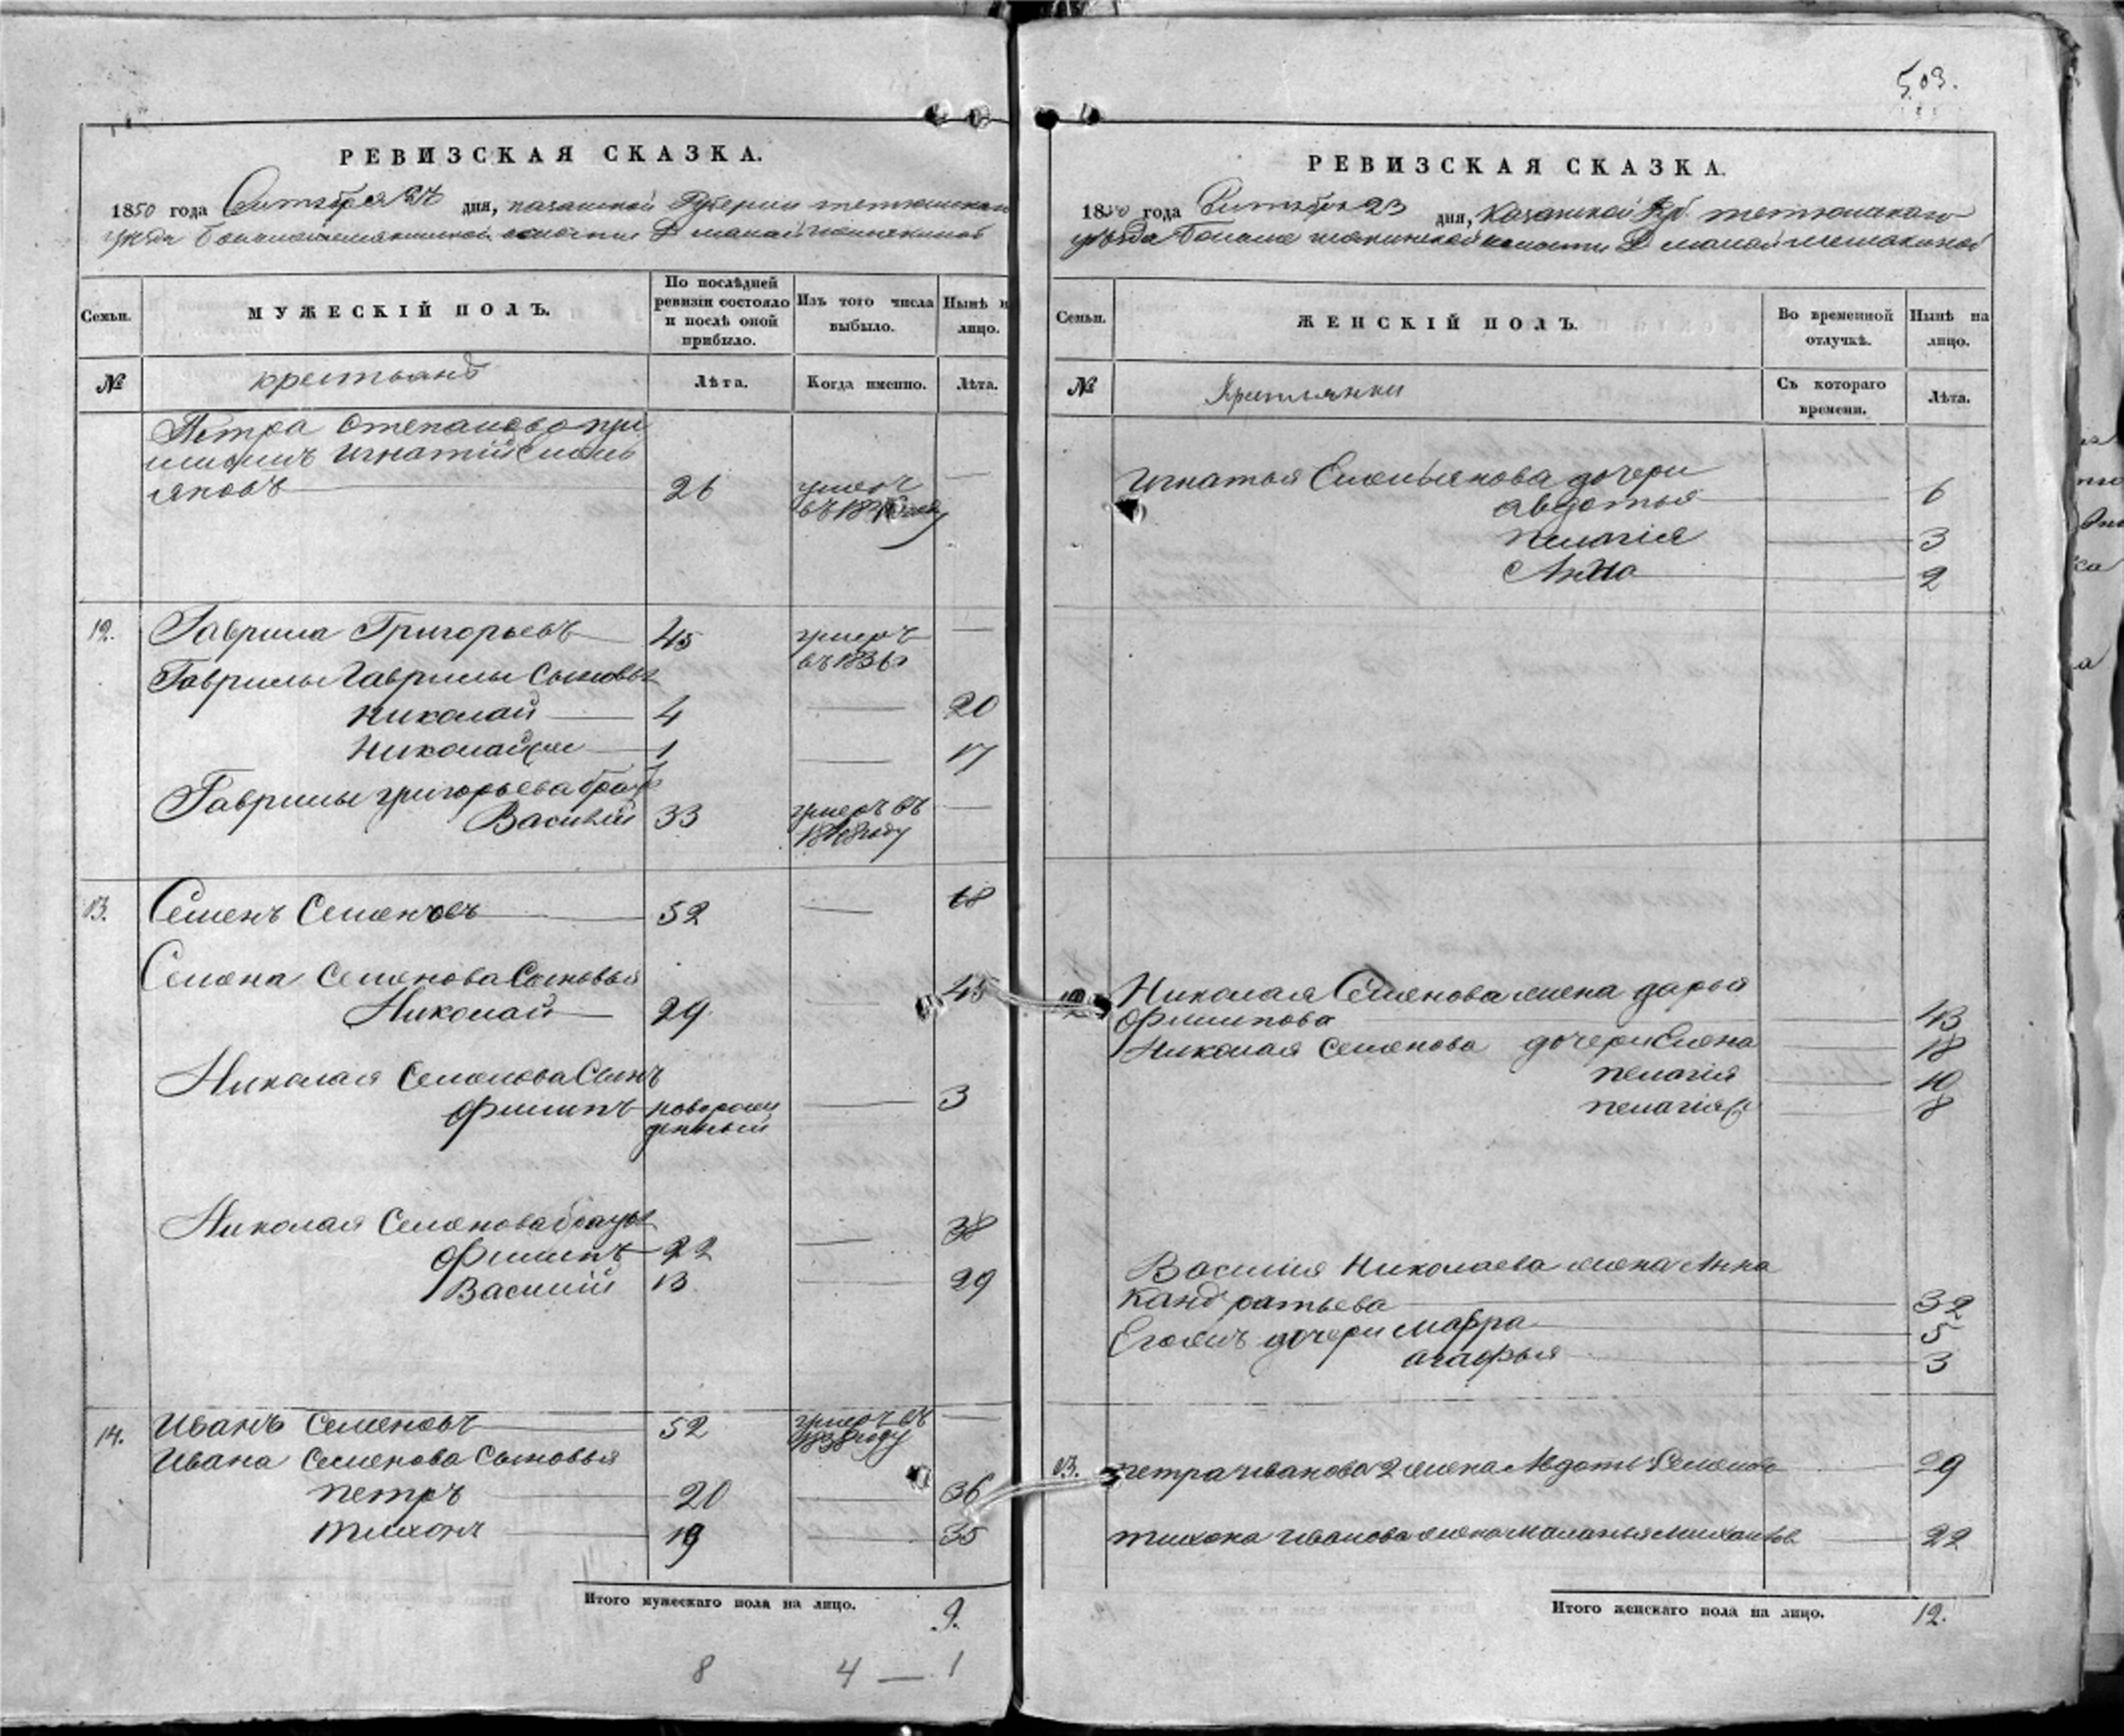 503.
РЕВИЗСКАЯ СКАЗКА.
1850 года Сентября дня, казанской Губернии тетюшскаго
уезда волости Д малой
Семьи.
МУЖЕСКІЙ ПОЛЪ.
По послѣдней ревизіи состояло и послѣ оной прибыло.
Изъ того числа выбыло.
Нынѣ н лицо.
№
крестьянъ
Лѣта.
Когда именно.
Лѣта.
Петра Степанова при
Игнатій Емель
яновъ 26 умеръ —
въ году
12. Гаврила Григорьевъ 45 умеръ —
въ 1836
Гаврилы Гаврилы Сыновья
Николай 4 — 20
Николай 1 — 17
Гаврилы григорьева братъ
Василий 33 умеръ въ —
1848 году
13. Семенъ Семеновъ 52 — 68
Семена Семенова Сыновья
Николай 29 — 45
Николая Семенова Сынъ
Филипъ новорож — 3
денный
Николая Семенова братья
Филипъ 22 — 38
Василий 13 — 29
14. Иванъ Семеновъ 52 умеръ въ —
1838 году
Ивана Семенова Сыновья
петръ 20 — 36
тихонъ 19 — 35
Итого мужескаго пола на лицо. 9.
8 4 — 1
РЕВИЗСКАЯ СКАЗКА.
1850 года Сентября 23 дня, Казанской Губ. тетюшскаго
уезда волости Д малой
Семьи.
ЖЕНСКІЙ ПОЛЪ.
Во временной отлучкѣ.
Нынѣ на лицо.
№
Крестьянки
Съ котораго времени.
Лѣта.
Игнатья Емельянова дочери
авдотья — 6
пелагія — 3
Анна — 2
12 Николая Семенова жена дарья
Филипова — 43
Николая Семенова дочери Елена — 18
пелагія — 10
пелагія — 8
Василия Николаева жена Анна
кандратьева — 32
Егоже дочери мафра — 5
агафья — 3
13. петра иванова 2 жена Авдотья Семенова 29
тихона Иванова жена Маланья Михаилова 22
Итого женскаго пола на лицо. 12.